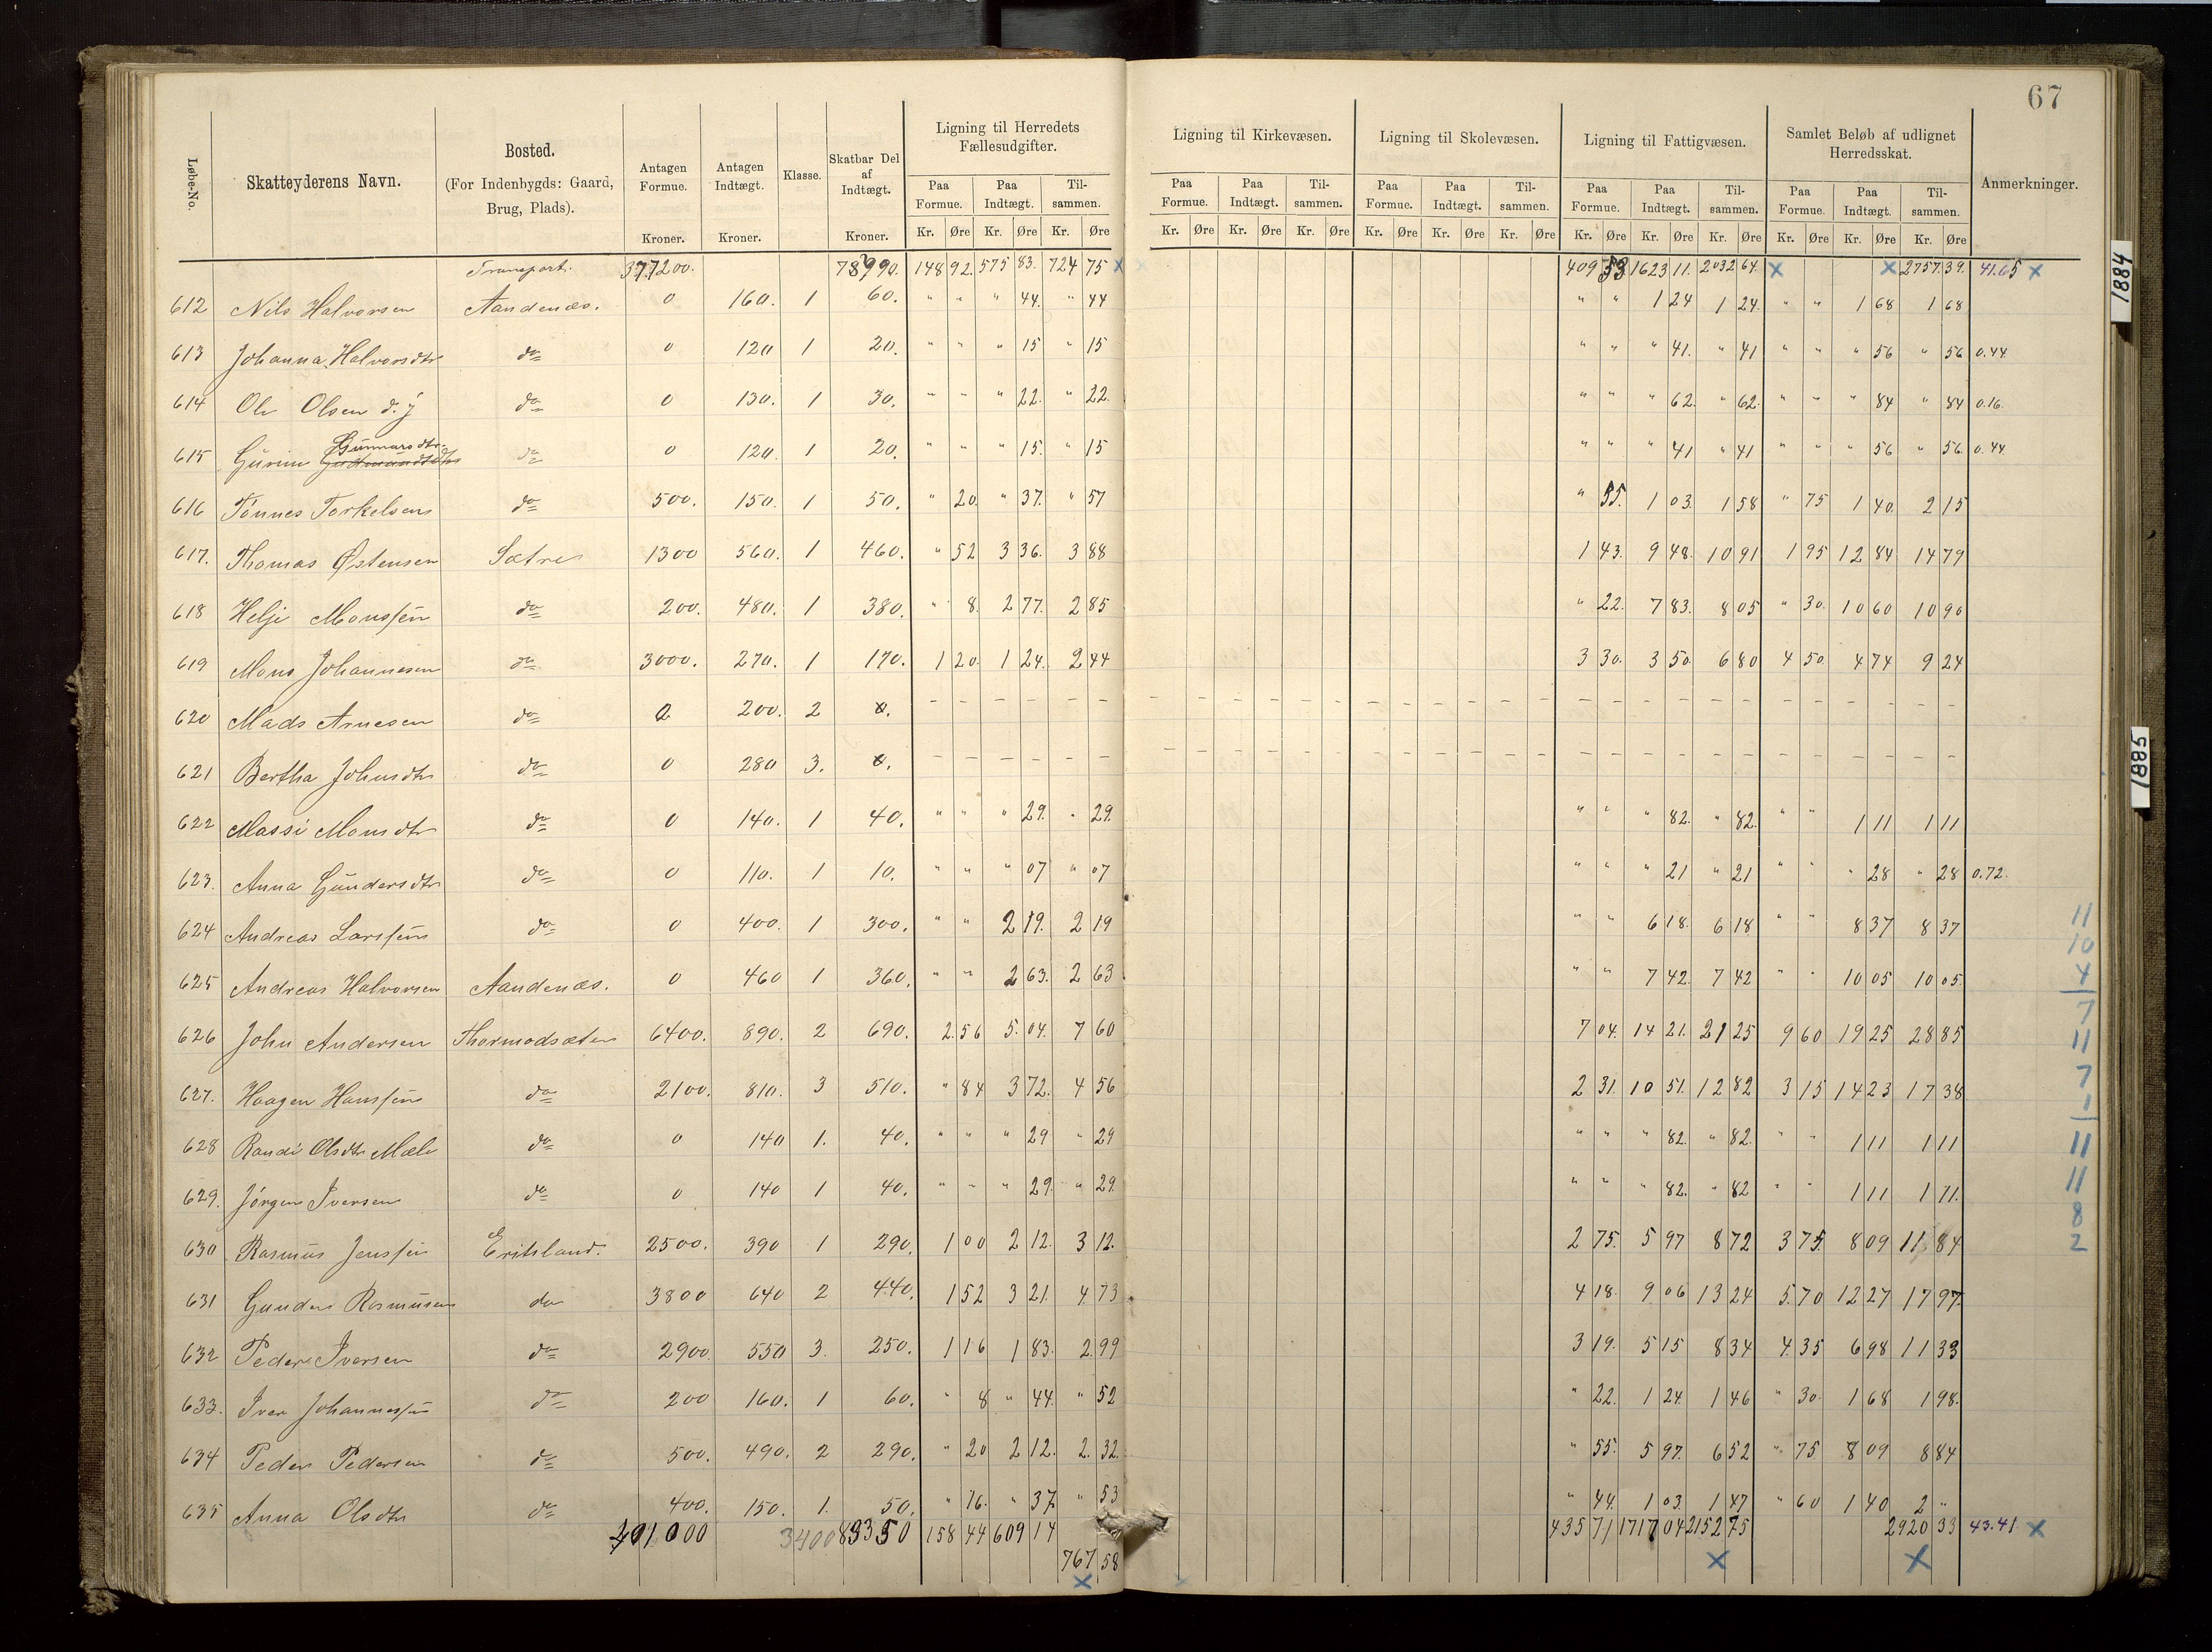 67
Løbe-No. Skatteyderens Navn. Bosted. (For Indenbygds: Gaard, Brug, Plads). Antagen Formue. Kroner. Antagen Indtægt. Kroner. Klasse. Skatbar Del af Indtægt. Kroner. Ligning til Herredets Fællesudgifter. Ligning til Kirkevæsen. Ligning til Skolevæsen. Ligning til Fattigvæsen. Samlet Beløb af udlignet Herredsskat. Anmerkninger.
Paa Formue. Paa Indtægt. Til- sammen. Paa Formue. Paa Indtægt. Til- sammen. Paa Formue. Paa Indtægt. Til- sammen. Paa Formue. Paa Indtægt. Til- sammen. Paa Formue. Paa Indtægt. Til- sammen.
Kr. Øre Kr. Øre Kr. Øre Kr. Øre Kr. Øre Kr. Øre Kr. Øre Kr. Øre Kr. Øre Kr. Øre Kr. Øre Kr. Øre Kr. Øre Kr. Øre Kr. Øre
Transport. 377200. 148 92. 575 83. 724 75 x 409 53 1623 11. 2032 64. x x 2757. 39. 41.65 x
612 Nils Halvorsen Aandenæs. 0 160. 1 60. " " " 44. " 44 " " 1 24 1 24. " " 1 68 1 68
613 Johanna Halvorsdtr do 0 120 1 20. " " " 15 " 15 " " " 41. " 41 " " " 56 " 56 0.44
614 Ole Olsen d. y do 0 130. 1 30. " " " 22. " 22. " " " 62. " 62. " " " 84 " 84 0.16.
615 Gurine Gunnarsdtr. do 0 120. 1 20. " " " 15. " 15 " " " 41 " 41 " " " 56 " 56. 0.44
616 Tønnes Torkelsen do 500. 150. 1 50. " 20. " 37. " 57 " 55. 1 03. 1 58 " 75 1 40. 2 15
617. Thomas Østensen Sætre 1300 560. 1 460. " 52 3 36. 3 88 1 43. 9 48. 10 91 1 95 12 84 14 79
618 Helje Monssen do 200. 480. 1 380. " 8. 2 77. 2 85 " 22. 7 83. 8 05 " 30. 10 60 10 90
619 Mons Johannesen do 3000. 270. 1 170. 1 20. 1 24. 2 44 3 30. 3 50. 6 80 4 50. 4 74 9 24
620 Mads Arnesen do 0 200. 2 0. – – – – – – – – – – – – – – – – – – – – – – – – – – – – – –
621 Bertha Johnsdtr do 0 280 3. 0. – – – – – – – – – – – – – – – – – – – – – – – – – – – – – –
622 Massi Monsdtr do 0 140. 1 40. " " " 29. " 29. " " " 82. " 82. " " 1 11 1 11
623. Anna Gundersdtr do 0 110. 1 10. " " " 07 " 07 " " " 21 " 21 " " " 28 " 28 0.72.
624 AndreasArssen do 0 400. 1 300. " " 2 19.2 19 " " 6 18.6 18 " " 8 37 8 37
625 Andreas Halvorsen Aandenæs. 0 460 1 360. " " 2 63. 2 63 " " 7 42. 7 42 " " 10 05 10 05.
626 John Andersen Thormodsæter 6400. 890. 2 690. 2. 56 5. 04. 7 60 7 04. 14 21. 21 25 9 60 19 25 28 85
627. Haagen Hanssen do 2100. 810. 3 510. " 84 3 72. 4 56 2 31. 10 51. 12 82 3 15 14 23 17 38
628 Randi Olsdtr Mæle do 0 140 1. 40. " " " 29 " 29 " " " 82. " 82. " " 1 11 1 11
629. Jørgen Iversen do 0 140 1 40. " " " 29. " 29. " " " 82. " 82 " " 1 11 1 11.
630 Rasmus Jenssen Eriksland. 2500. 390 1 290. 1 00 2 12. 3 12. 2 75. 5 97 8 72 3 75. 8 09 11 84
631 Gunder Rasmusen do 3800 640 2 440. 1 52 3 21. 4. 73 4 18. 9 06 13 24 5. 70 12 27 17 97.
632 Peder Iversen do 2900. 550 3. 250. 1 16 1 83. 2. 99 3 19. 5 15 8 34 4. 35 6 98 11 33
633. Iver Johannessen do 200 160. 1 60. " 8 " 44. " 52 " 22. 1 24. 1 46 " 30. 1 68 1 98.
634 Peder Pedersen do 500. 490. 2 290. " 20 2 12. 2. 32. " 55. 5 97. 6 52 " 75. 8 09 8 84
635 Anna Olsdtr do 400. 150. 1. 50. " 16. " 37. " 53 " 44. 1 03. 1 47 " 60 1 40 2 "
401000 3400 83350 158 44 609 14 435 71 1717 04 2152 75 2920 33 43.41. x
767 58
x x x x
11
10
4
7
11
7
1
11
11
8
2
1884
1885